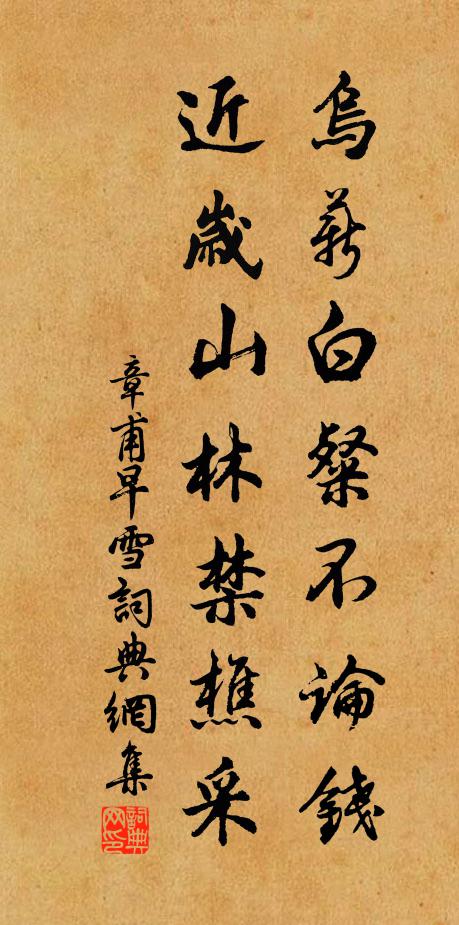 烏薪白粲不論錢
近歲山林禁樵采
章甫早雪詞典網集
詞典
网印